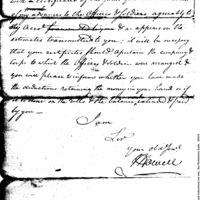 your advance to the Officers & Soldiers agreeably to
the Acco.t & as appears on the
estimates transmitted to you; it will be necessary
that your certificates should ascertain the company &
corps to which the Officers & Soldiers were arranged &
you will please to inform whether you have made
the deductions retaining the money in your hands or if
the balance extended & paid
by you —
I am
Sir
your ob.d Serv.t
J Howell